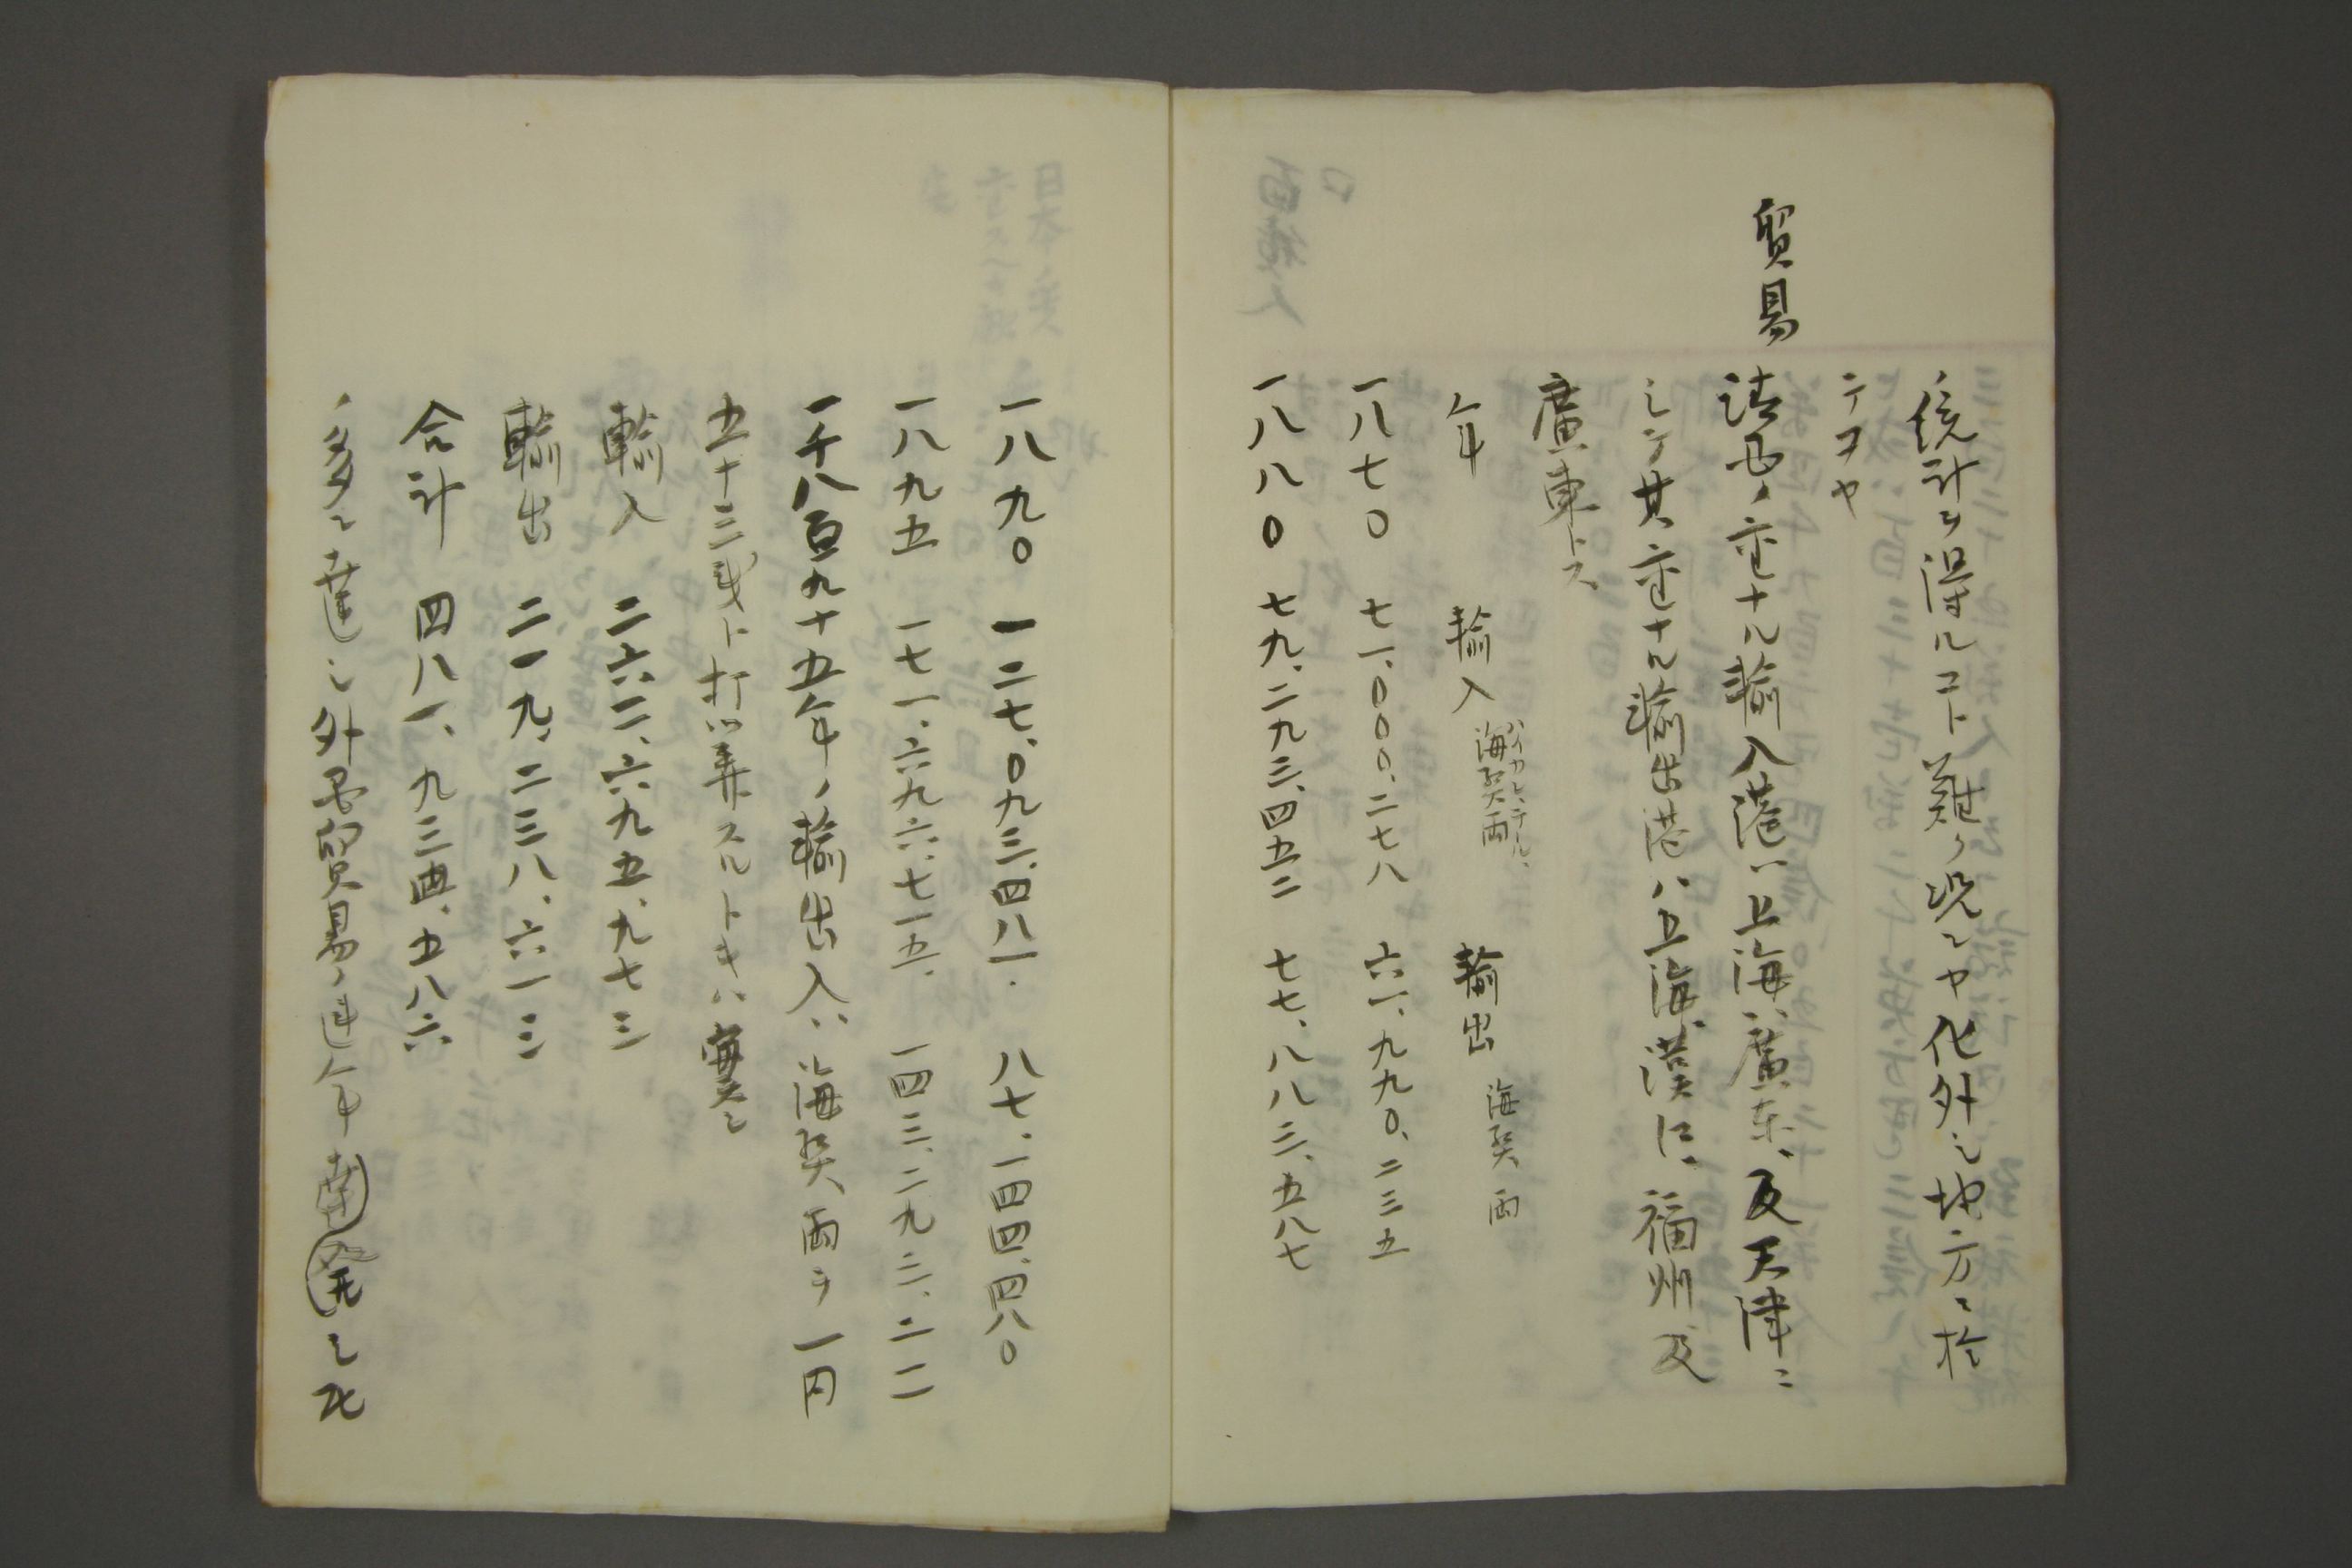 ノ統計ヲ得ルコト難シ況ンヤ化外ノ地方ニ於
テヲヤ
貿易
清国ノ重ナル輸入港ハ上海、廣東、及天津ニ
シテ其重ナル輸出港ハ上海、漢口、福州及
廣東トス
年 輸入 海関両 ハイカンテール 輸出 海関両
一八七〇 七一、〇〇〇、二七八 六一、九九〇、二三五
一八八〇 七九、二九三、四五二 七七、八八三、五八七
一八九〇 一二七、〇九三、四八一 八七、一四四、四八〇
一八九五 一七一、六九六、七一五 一四三、二九三、二一一
一千八百九十五年ノ輸出入ハ海関両ヲ一円
五十三戋ト打算スルトキハ實ニ
輸入 二六二、六九五、九七三
輸出 二一九、二三八、六一三
合計 四八一、九三四、五八六
ノ多ニ達シ外国貿易ノ連年